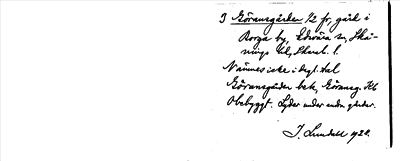 3 Göransgården 1/2 fr, gård i
Korza by, Edsvära sn, Skå-
nings hd, Skarab. l.
Nämnes icke i dagl. tal
Göransgården bet, Göransg.
Obebyggt. Lyder under andra gårdar.
J. Lundell 1920.